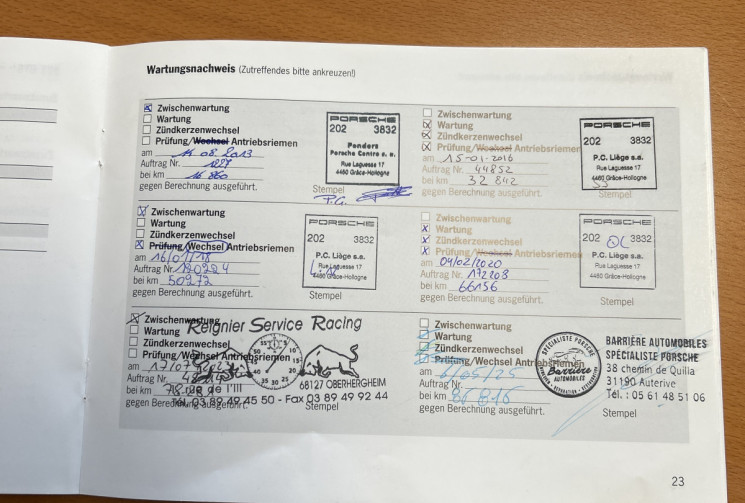 Wartungsnachweis (Zutreffendes bitte ankreuzen!)
Zwischenwartung
Wartung
Zündkerzenwechsel
Prüfung/Wechsel Antriebsriemen
am 08.2013
Auftrag Nr. 1227
bei km
gegen Berechnung ausgeführt.
PORSCHE
202 3832
Ponders
Porsche Centre s. a.
Rue Laguesse 17
4460 Grâce-Hollogne
Stempel
P.G.
Zwischenwartung
Wartung
Zündkerzenwechsel
Prüfung/Wechsel Antriebsriemen
am 15-01-2016
Auftrag Nr. 44852
bei km 32 842
gegen Berechnung ausgeführt.
PORSCHE
202 3832
P.C. Liège s.a.
Rue Laguesse 17
4460 Grâce-Hollogne
Stempel
Zwischenwartung
Wartung
Zündkerzenwechsel
Prüfung/Wechsel Antriebsriemen
am 16/01/18
Auftrag Nr. 120224
bei km 50272
gegen Berechnung ausgeführt.
PORSCHE
202 3832
P.C. Liège s.a.
Rue Laguesse 17
4460 Grâce-Hollogne
Stempel
Zwischenwartung
Wartung
Zündkerzenwechsel
Prüfung/Wechsel Antriebsriemen
am 04/02/2020
Auftrag Nr. 172208
bei km 66156
gegen Berechnung ausgeführt.
PORSCHE
202 3832
P.C. Liège s.a.
Rue Laguesse 17
4460 Grâce-Hollogne
Stempel
Zwischenwartung
Wartung
Zündkerzenwechsel
Prüfung/Wechsel Antriebsriemen
am 17/07
Auftrag Nr.
bei km
gegen Berechnung ausgeführt.
Reignier Service Racing
de l'Ill
68127 OBERHERGHEIM
Tél. 03 89 49 45 50 - Fax 03 89 49 92 44
Stempel
Zwischenwartung
Wartung
Zündkerzenwechsel
Prüfung/Wechsel Antriebsriemen
am 6/05/25
Auftrag Nr.
bei km 86816
gegen Berechnung ausgeführt.
SPÉCIALISTE PORSCHE
Barrière
AUTOMOBILES
BARRIÈRE AUTOMOBILES
SPÉCIALISTE PORSCHE
38 chemin de Quilla
31190 Auterive
Tél. : 05 61 48 51 06
Stempel
23